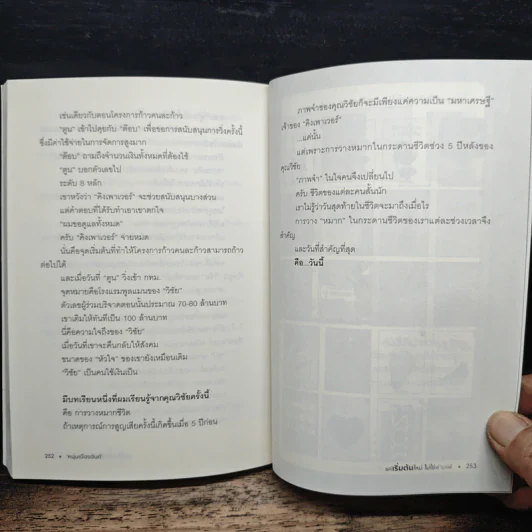 เช่นเดียวกับตอนโครงการก้าวคนละก้าว
"ตูน" เข้าไปคุยกับ "ต๊อบ" เพื่อขอการสนับสนุนการวิ่งครั้งนี้
ซึ่งมีค่าใช้จ่ายในการจัดการสูงมาก
"ต๊อบ" ถามถึงจำนวนเงินทั้งหมดที่ต้องใช้
"ตูน" บอกตัวเลขไป
ระดับ 8 หลัก
เขาหวังว่า "คิงเพาเวอร์" จะช่วยสนับสนุนบางส่วน
แต่คำตอบที่ได้รับทำเอาเขาตกใจ
"ผมขอดูแลทั้งหมด"
ครับ "คิงเพาเวอร์" จ่ายหมด
นั่นคือจุดเริ่มต้นที่ทำให้โครงการก้าวคนละก้าวสามารถก้าว
ต่อไปได้
และเมื่อวันที่ "ตูน" วิ่งเข้า กทม.
จุดหมายคือโรงแรมพูลแมนของ "วิชัย"
ตัวเลขผู้ร่วมบริจาคตอนนั้นประมาณ 70-80 ล้านบาท
เขาเติมให้ทันทีเป็น 100 ล้านบาท
นี่คือความใจถึงของ "วิชัย"
เมื่อวันที่เขาจะคืนกลับให้สังคม
ขนาดของ "หัวใจ" ของเขายังเหมือนเดิม
"วิชัย" เป็นคนใช้เงินเป็น
มีบทเรียนหนึ่งที่ผมเรียนรู้จากคุณวิชัยครั้งนี้
คือ การวางหมากชีวิต
ถ้าเหตุการณ์การสูญเสียครั้งนี้เกิดขึ้นเมื่อ 5 ปีก่อน
252 • หนุ่มเมืองจันท์
ภาพจำของคุณวิชัยก็จะมีเพียงแค่ความเป็น "มหาเศรษฐี"
เจ้าของ "คิงเพาเวอร์"
...แค่นั้น
แต่เพราะการวางหมากในกระดานชีวิตช่วง 5 ปีหลังของ
คุณวิชัย
"ภาพจำ" ในใจคนจึงเปลี่ยนไป
ครับ ชีวิตของแต่ละคนสั้นนัก
เราไม่รู้ว่าวันสุดท้ายในชีวิตจะมาถึงเมื่อไร
การวาง "หมาก" ในกระดานชีวิตของเราแต่ละช่วงเวลาจึง
สำคัญ
และวันที่สำคัญที่สุด
คือ...วันนี้
แค่เริ่มต้นใหม่ ไม่ใช่ • 253